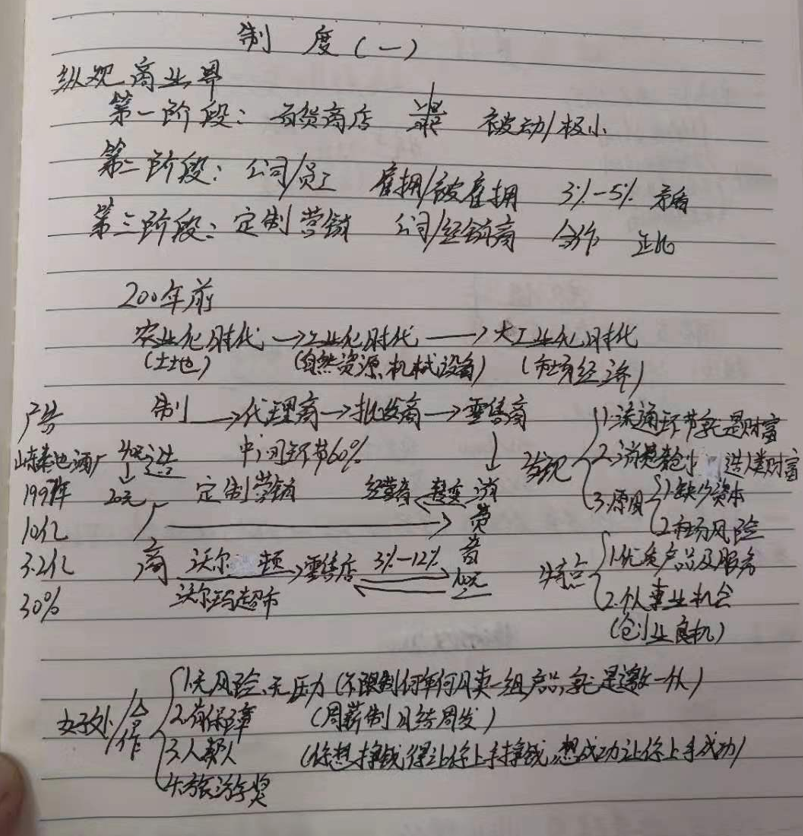 制 度(一)
纵观商业界
第一阶段: 百货商店 被动/极小
第二阶段: 公司/员工 雇拥/被雇拥 3%-5% 矛盾
第三阶段: 定制营销 公司/经销商 合作 正比
200年前
农业化时代 →工业化时代 →大工业化时代
(土地) (自然资源、机械设备) (市场经济)
广告 制 →代理商→批发商→零售商
1.流通环节就是财富
山东秦池酒厂 中间环节60% 发现 2.消费 造人类财富
199 年 20元 定制营销 经营者 消费者 3.原因 1.缺少资本
10亿 2.市场风险
3.2亿 商 沃尔 顿 →零售店 3%-12% 特点 1.优质产品及服务
30% 沃尔玛超市 2.个人事业机会
(创业良机)
好处/合作 1.无风险、无压力 (不限制何年何月卖一组产品,就是邀一水)
2.有保障 (周薪制 月结周发)
3.人帮人 (你想挣钱得让你上手挣钱,想成功让你上手成功)
4.旅游车奖